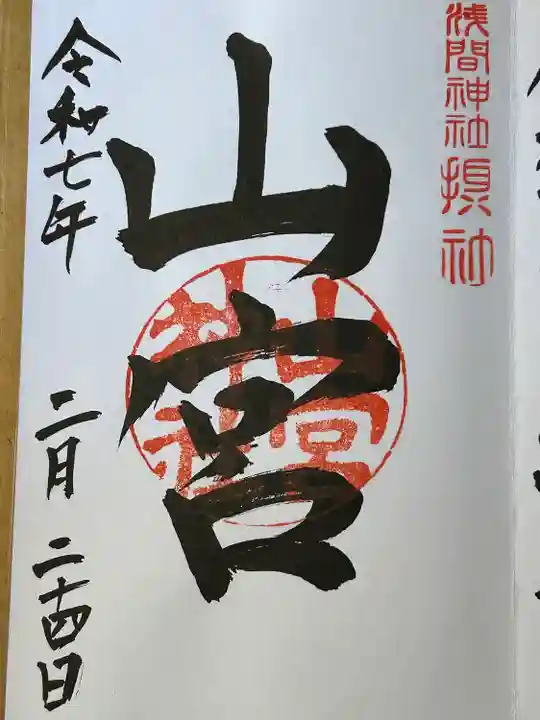 浅間神社摂社
山宮
山宮神社
令和七年 二月 二十四日